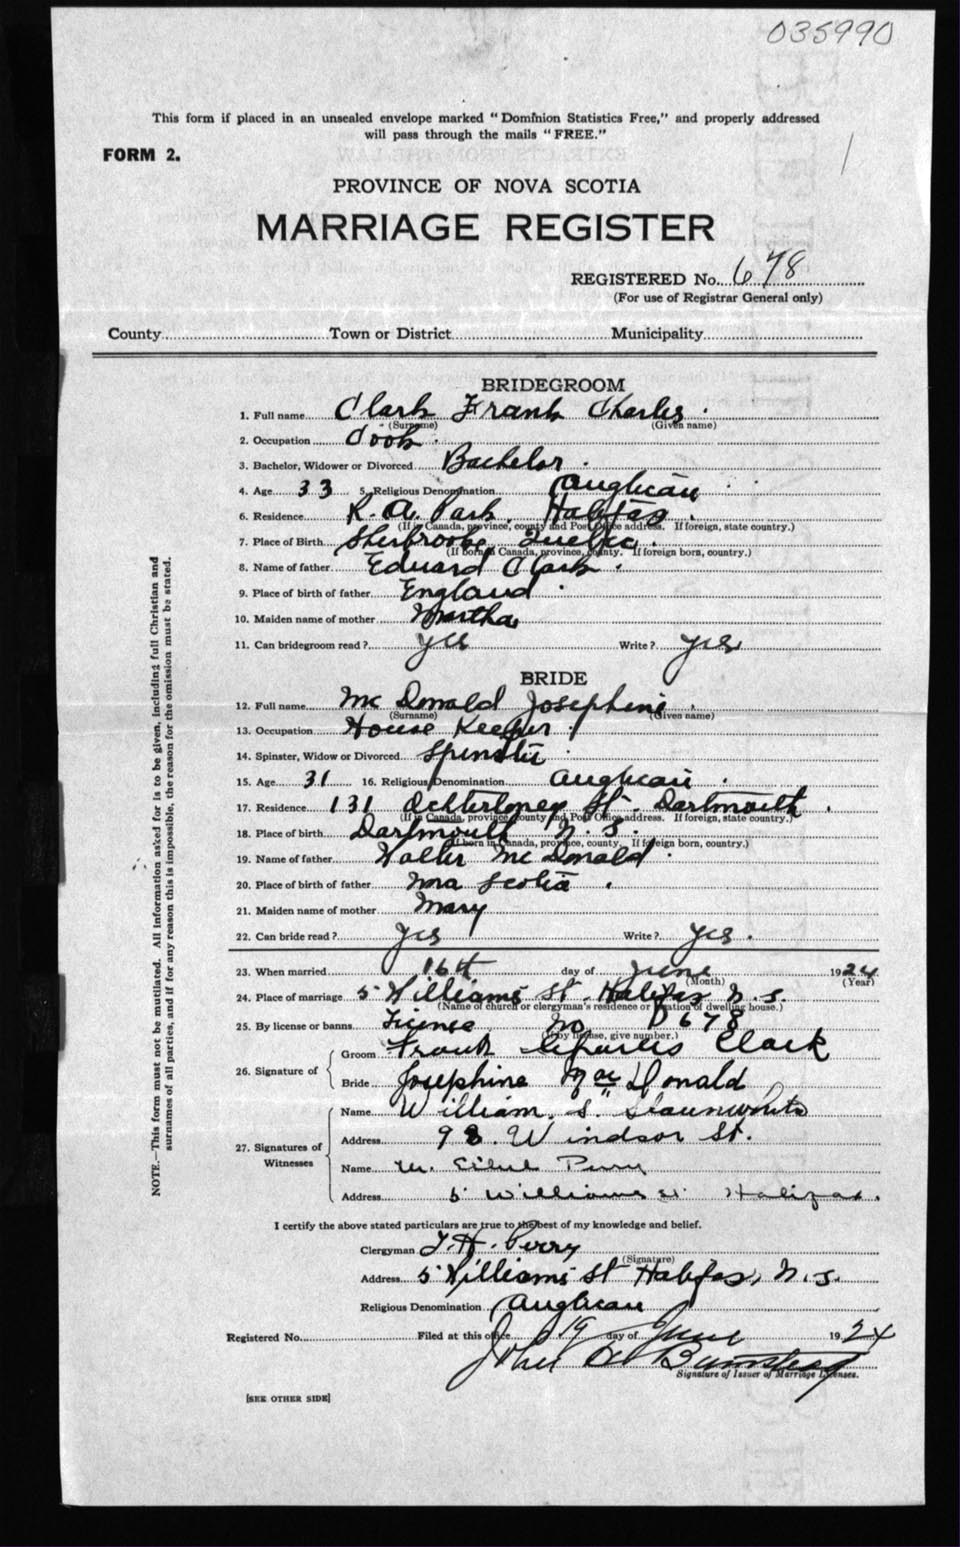 035990
This form if placed in an unsealed envelope marked "Dominion Statistics Free," and properly addressed
will pass through the mails "FREE."
FORM 2.
1
PROVINCE OF NOVA SCOTIA
MARRIAGE REGISTER
REGISTERED No. 678
(For use of Registrar General only)
County Town or District Municipality
BRIDEGROOM
1. Full name Clark Frank Charles
(Surname) (Given name)
2. Occupation Cook
3. Bachelor, Widower or Divorced Bachelor
4. Age 33 5. Religious Denomination Anglican
6. Residence R. A. Park, Halifax
(If in Canada, province, county and Post Office address. If foreign, state country.)
7. Place of Birth Sherbrooke Quebec
(If born in Canada, province, county. If foreign born, country.)
8. Name of father Edward Clark
9. Place of birth of father England
10. Maiden name of mother Martha
11. Can bridegroom read? Yes Write? Yes
BRIDE
12. Full name McDonald Josephine
(Surname) (Given name)
13. Occupation House Keeper
14. Spinster, Widow or Divorced Spinster
15. Age 31 16. Religious Denomination Anglican
17. Residence 131 Ochterloney St. Dartmouth
(If in Canada, province, county and Post Office address. If foreign, state country.)
18. Place of birth Dartmouth N. S.
(If born in Canada, province, county. If foreign born, country.)
19. Name of father Walter McDonald
20. Place of birth of father Nova Scotia
21. Maiden name of mother Mary
22. Can bride read? Yes Write? Yes
23. When married 16th day of June 1924
(Month) (Year)
24. Place of marriage 5 Williams St. Halifax N. S.
(Name of church or clergyman's residence or location of dwelling house.)
25. By license or banns License No D 678
(If by license, give number.)
26. Signature of
Groom Frank Charles Clark
Bride Josephine MacDonald
27. Signatures of Witnesses
Name William. S.
Address 98 Windsor St.
Name M. Ethel Perry
Address 5 Williams St. Halifax.
I certify the above stated particulars are true to the best of my knowledge and belief.
Clergyman T. H. Perry
(Signature)
Address 5 Williams St Halifax, N. S.
Religious Denomination Anglican
Registered No. Filed at this office 19 day of June 1924
John
Signature of Issuer of Marriage Licenses.
[SEE OTHER SIDE]
NOTE.—This form must not be mutilated. All information asked for is to be given, including full Christian and
surnames of all parties, and if for any reason this is impossible, the reason for the omission must be stated.